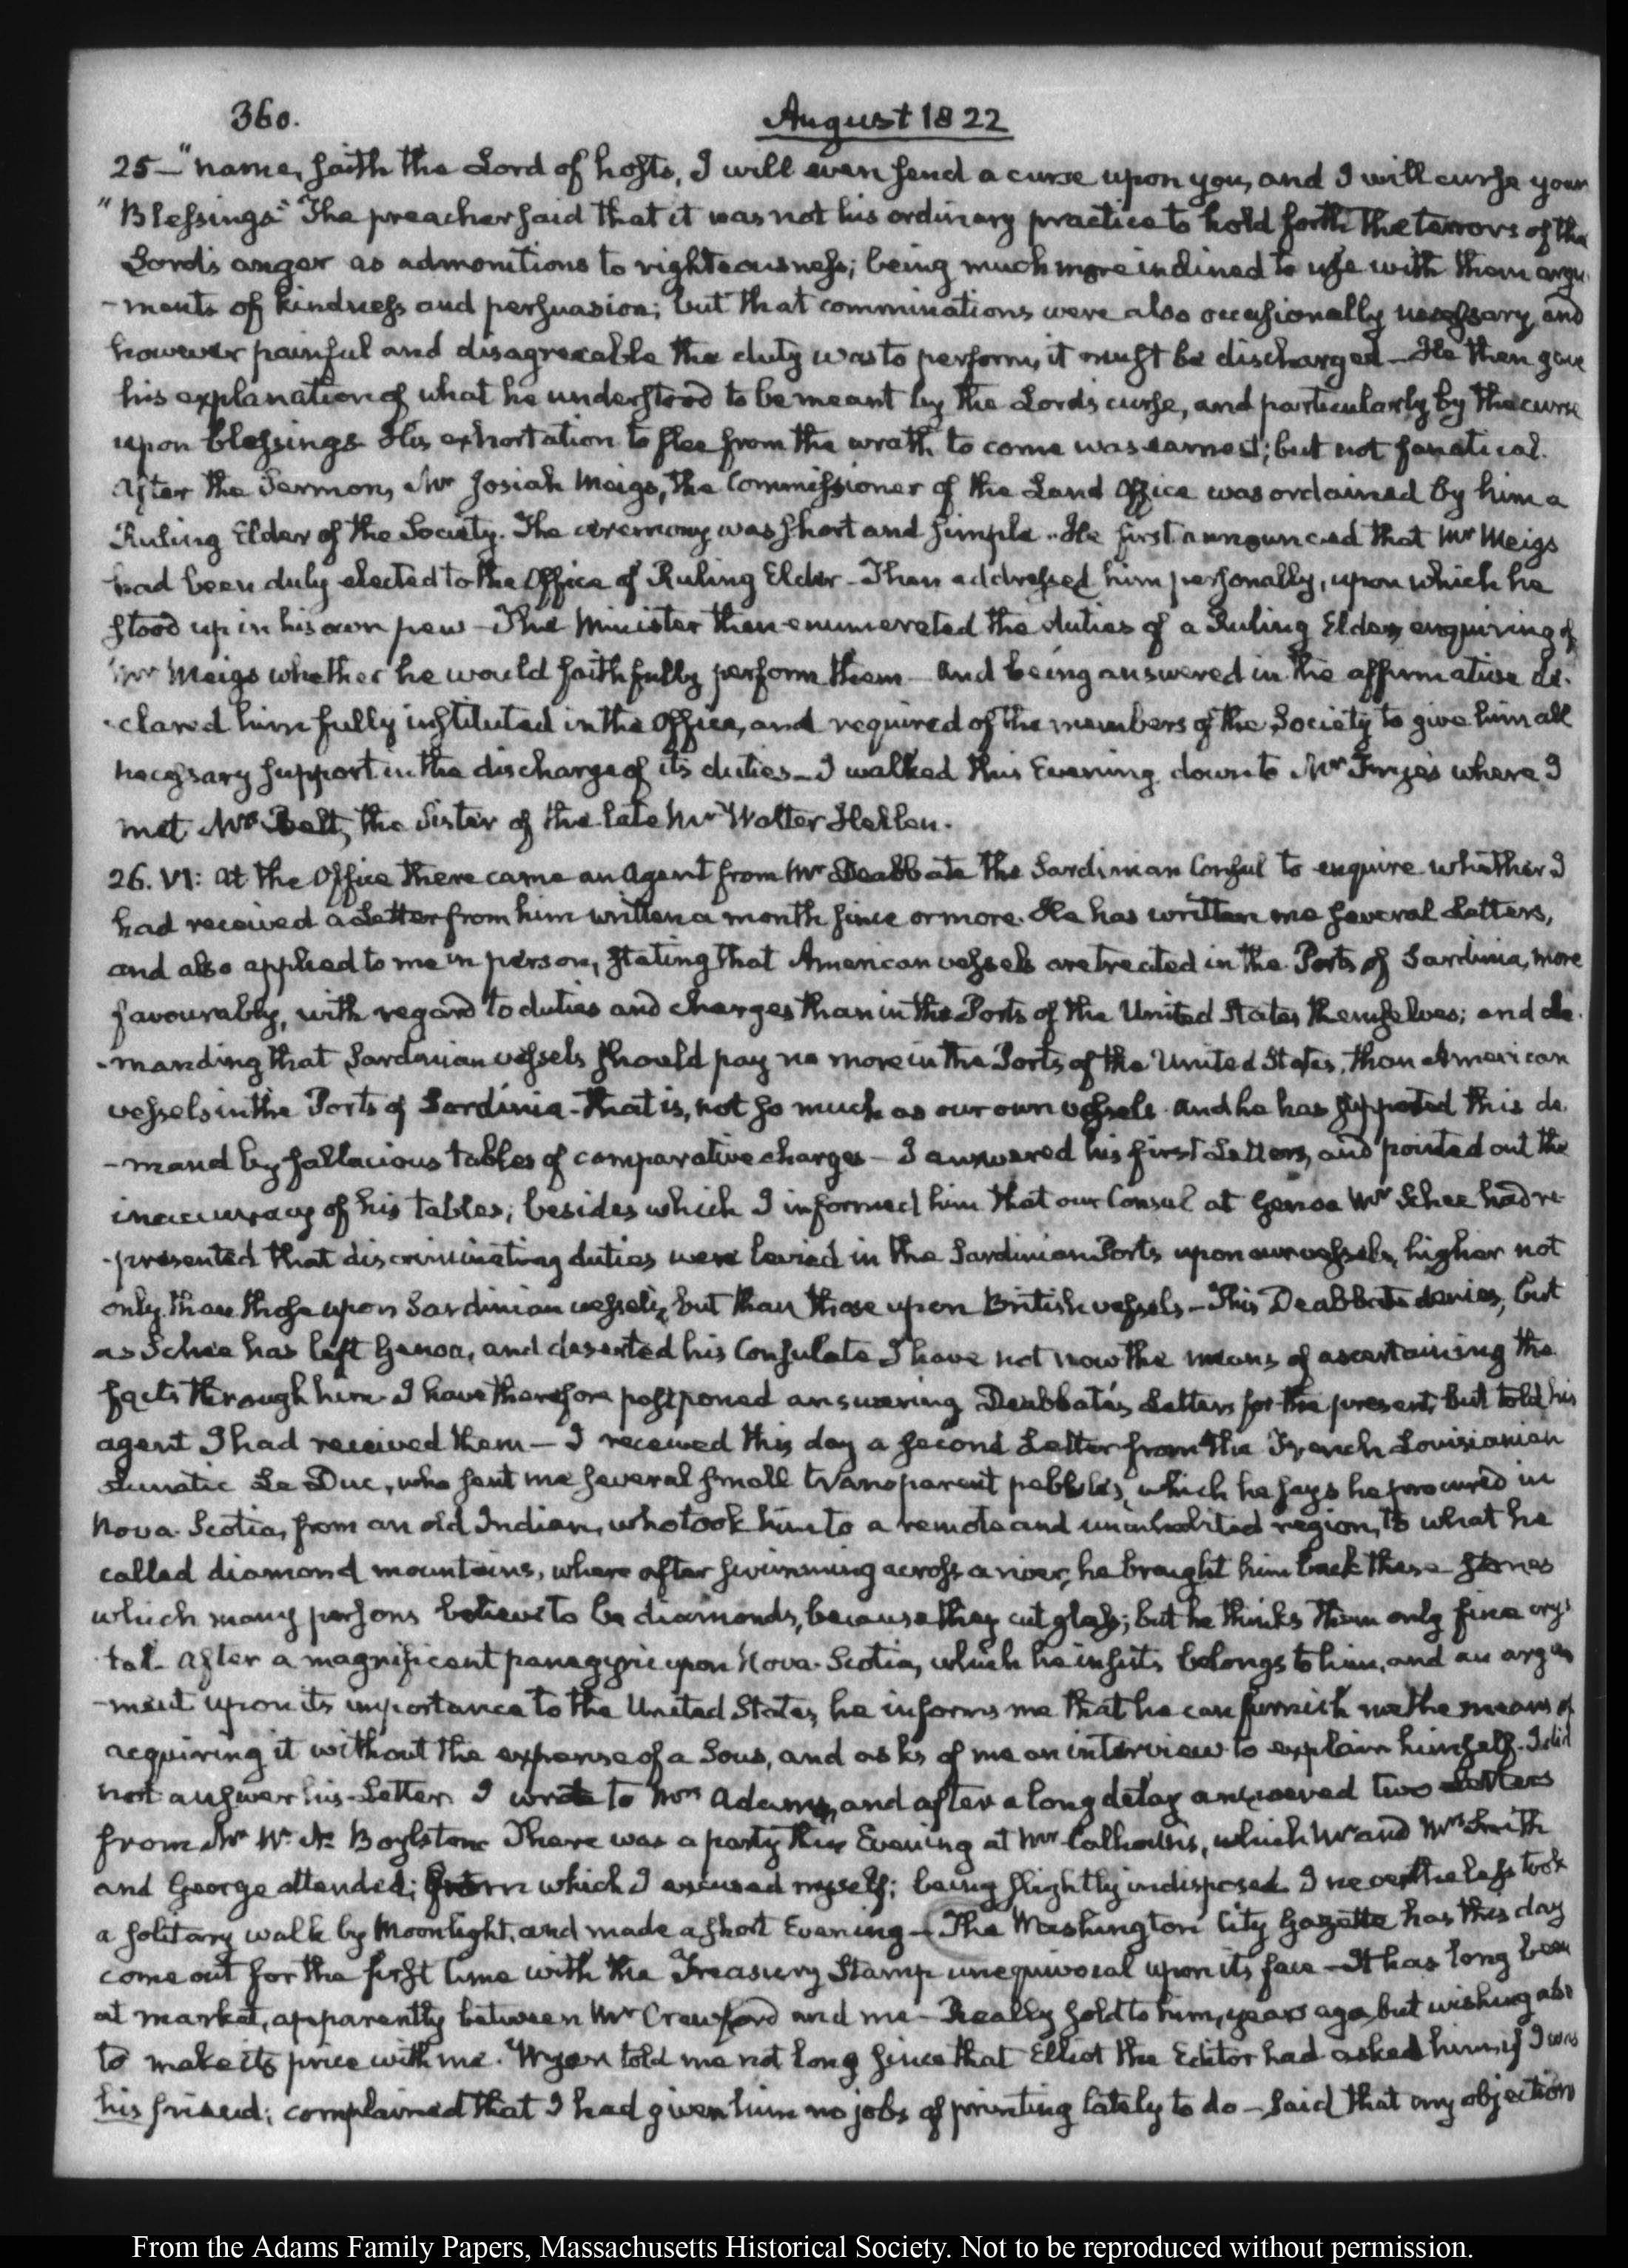 360.
August 1822
25— "name, saith the Lord of hosts, I will even send a curse upon you, and I will curse your
"Blessings." The preacher said that it was not his ordinary practice to hold forth the terrors of the
Lord's anger as admonitions to righteousness; being much more inclined to use with them argu-
-ments of kindness and persuasion; but that comminations were also occasionally necessary, and
however painful and disagreeable the duty was to perform, it must be discharged— He then gave
his explanation of what he understood to be meant by the Lord's curse, and particularly by the curse
upon blessings. His exhortation to flee from the wrath to come was earnest; but not fanatical.
After the Sermon, Mr Josiah Meigs, the Commissioner of the Land Office was ordained by him a
Ruling Elder of the Society. The ceremony was short and simple. He first announced that Mr Meigs
had been duly elected to the Office of Ruling Elder— Then addressed him personally, upon which he
stood up in his own pew— The Minister then enumerated the duties of a Ruling Elder, enquiring of
Mr Meigs whether he would faithfully perform them— And being answered in the affirmative de-
-clared him fully instituted in the Office, and required of the members of the Society to give him all
necessary support in the discharge of its duties— I walked this Evening down to Mr Frye's where I
met Mrs Belt, the Sister of the late Mr Walter Hellen.
26. VI: At the Office there came an Agent from Mr Deabbate the Sardinian Consul to enquire whether I
had received a Letter from him written a month since or more. He has written me several Letters,
and also applied to me in person, stating that American vessels are treated in the Ports of Sardinia, more
favourably, with regard to duties and charges than in the Ports of the United States themselves; and de-
-manding that Sardinian vessels should pay no more in the Ports of the United States, than American
vessels in the Ports of Sardinia— that is, not so much as our own vessels. And he has supported this de-
-mand by fallacious tables of comparative charges— I answered his first Letters, and pointed out the
inaccuracy of his tables; besides which I informed him that our Consul at Genoa Mr Schee had re-
-presented that discriminating duties were levied in the Sardinian Ports upon our vessels, higher not
only than those upon Sardinian vessels, but than those upon British vessels— This Deabbate denies, but
as Schee has left Genoa, and deserted his Consulate I have not now the means of ascertaining the
facts through him. I have therefore postponed answering Deabbate's Letters for the present, but told his
agent I had received them— I received this day a second Letter from the French Louisianian
Lunatic Le Duc, who sent me several small transparent pebbles, which he says he procured in
Nova-Scotia, from an old Indian, who took him to a remote and uninhabited region, to what he
called diamond mountains, where after swimming across a river, he brought him back these stones
which many persons believe to be diamonds, because they cut glass; but he thinks them only fine crys-
-tal. After a magnificent panegyric upon Nova-Scotia, which he insists belongs to him, and an argu-
-ment upon its importance to the United States, he informs me that he can furnish me the means of
acquiring it without the expense of a Sous, and asks of me an interview to explain himself. I did
not answer his Letter. I wrote to Mrs Adams, and after a long delay answered two Letters
from Mr W. N. Boylston. There was a party this Evening at Mr Calhoun's, which Mr and Mrs Smith
and George attended; from which I excused myself; being slightly indisposed. I nevertheless took
a solitary walk by Moonlight, and made a short Evening— The Washington City Gazette has this day
come out for the first time with the Treasury Stamp unequivocal upon its face— It has long been
at market, apparently between Mr Crawford and me— Really sold to him, years ago, but wishing also
to make its price with me. Wyer told me not long since that Elliot the Editor had asked him, if I was
his friend; complained that I had given him no jobs of printing lately to do— Said that my objection
From the Adams Family Papers, Massachusetts Historical Society. Not to be reproduced without permission.